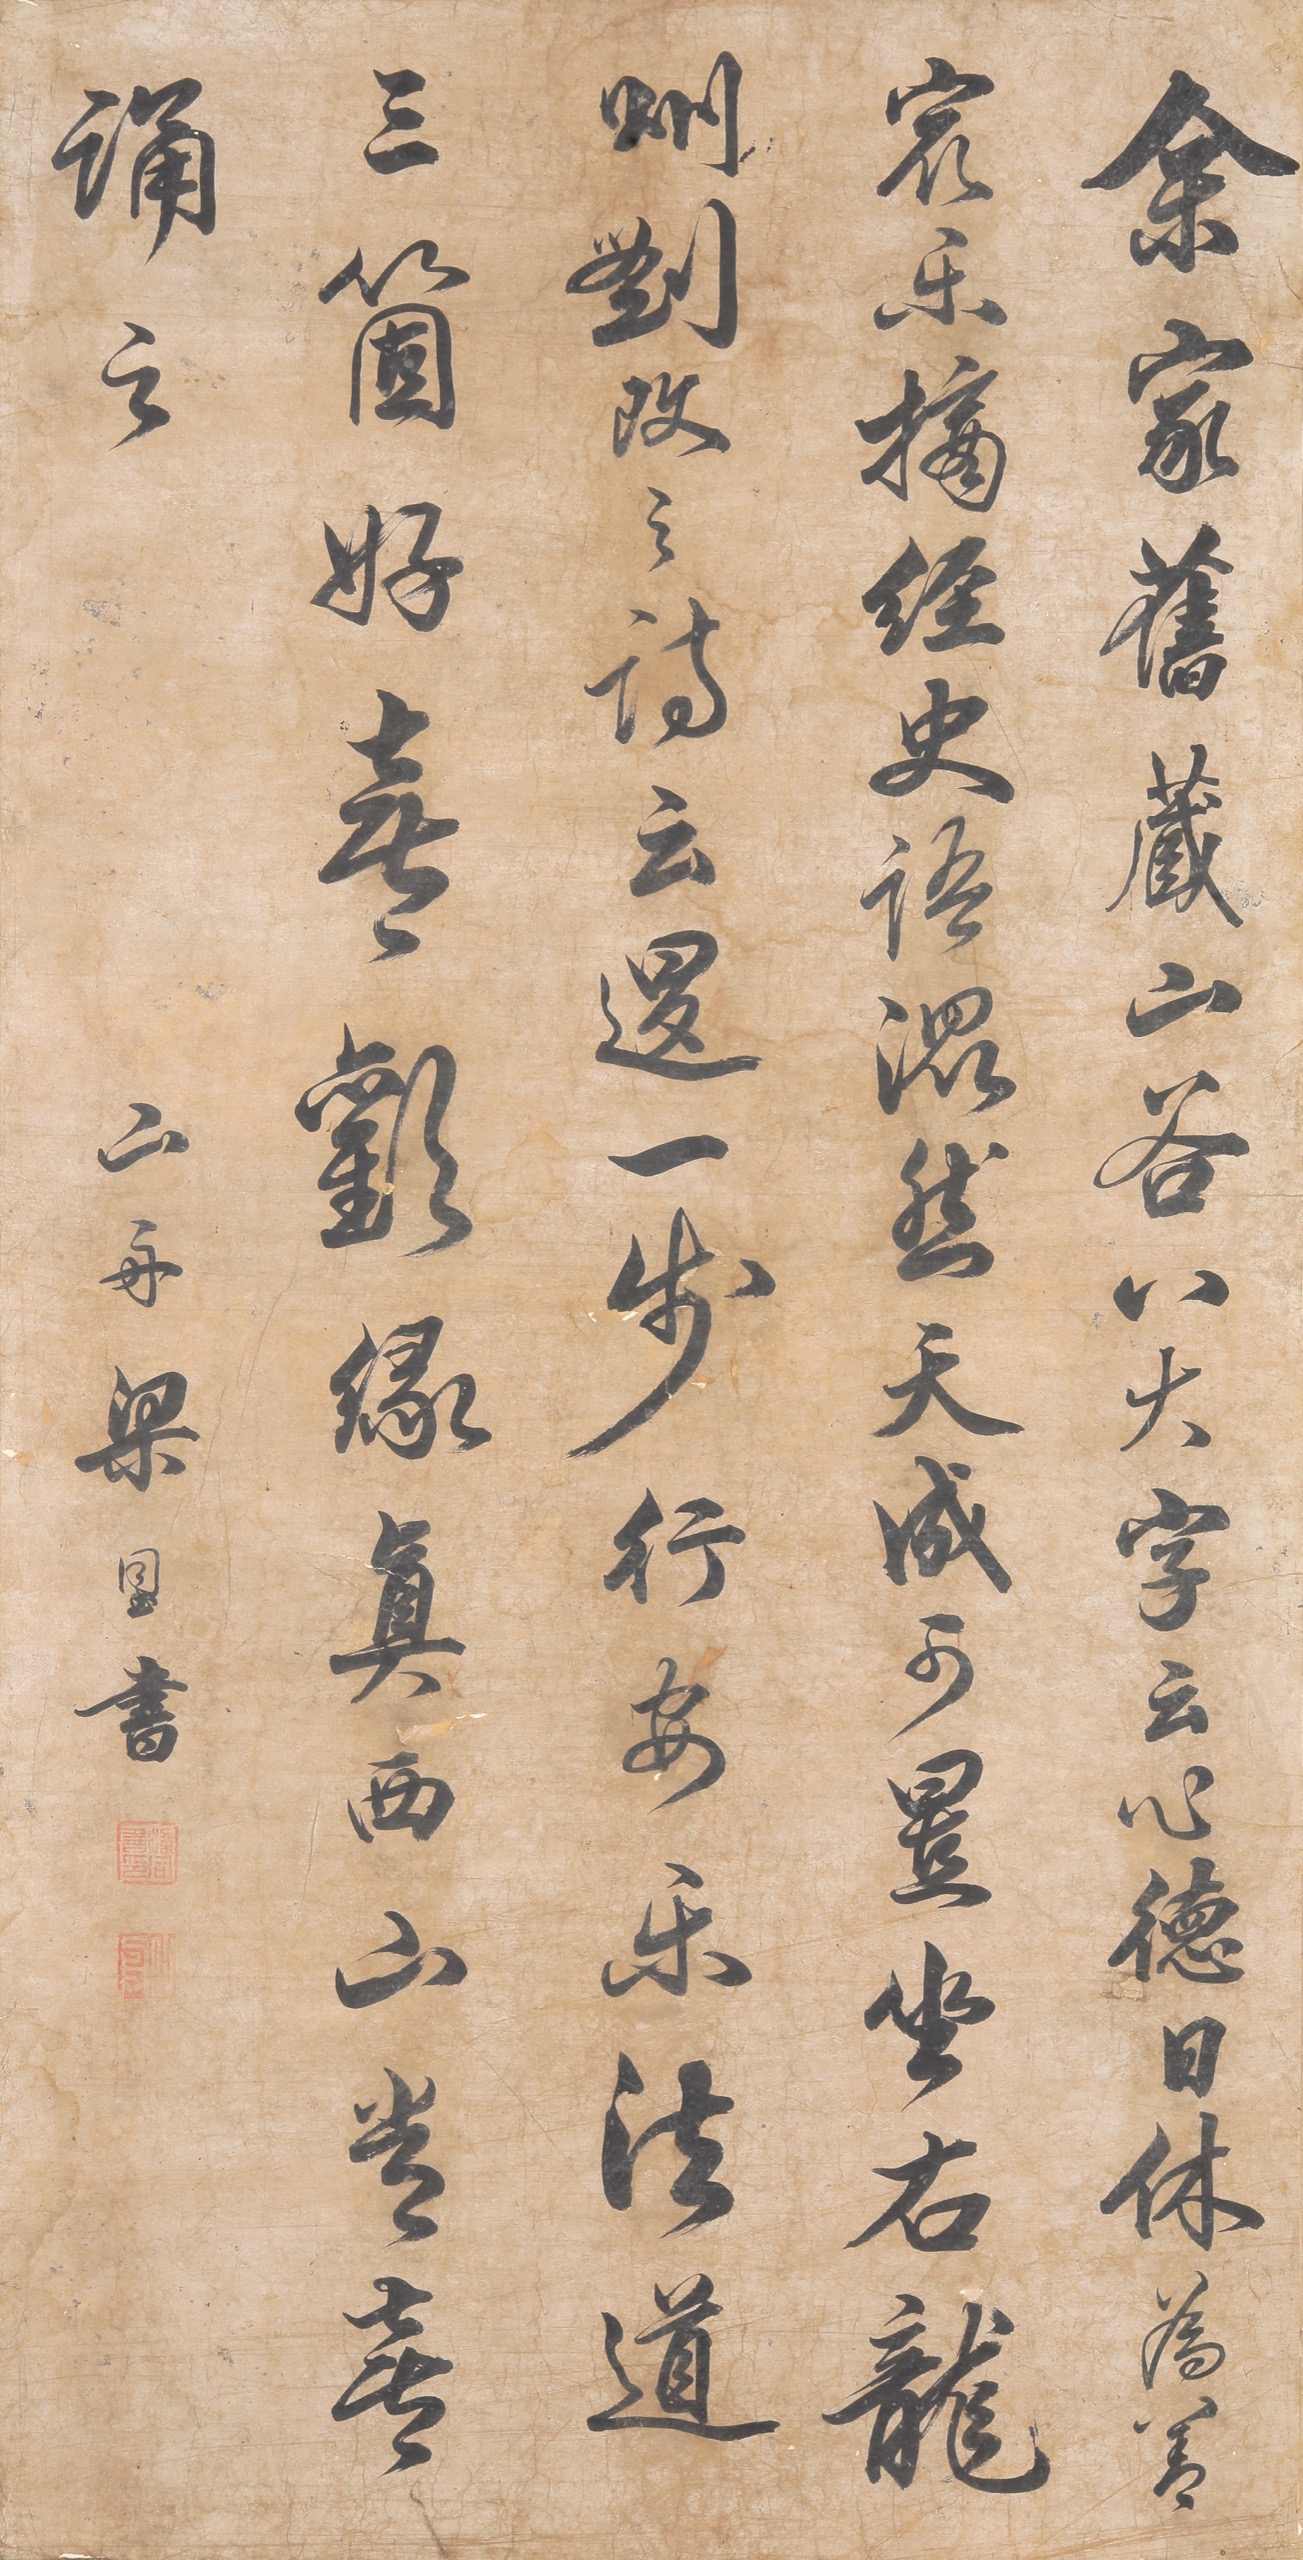 余家舊藏山谷八大字云心德日休為善
最樂摘經史語混然天成可置坐右龍
洲劉改之詩云退一步行安樂法道
三箇好喜歡緣真西山常喜
誦之
山舟梁同書